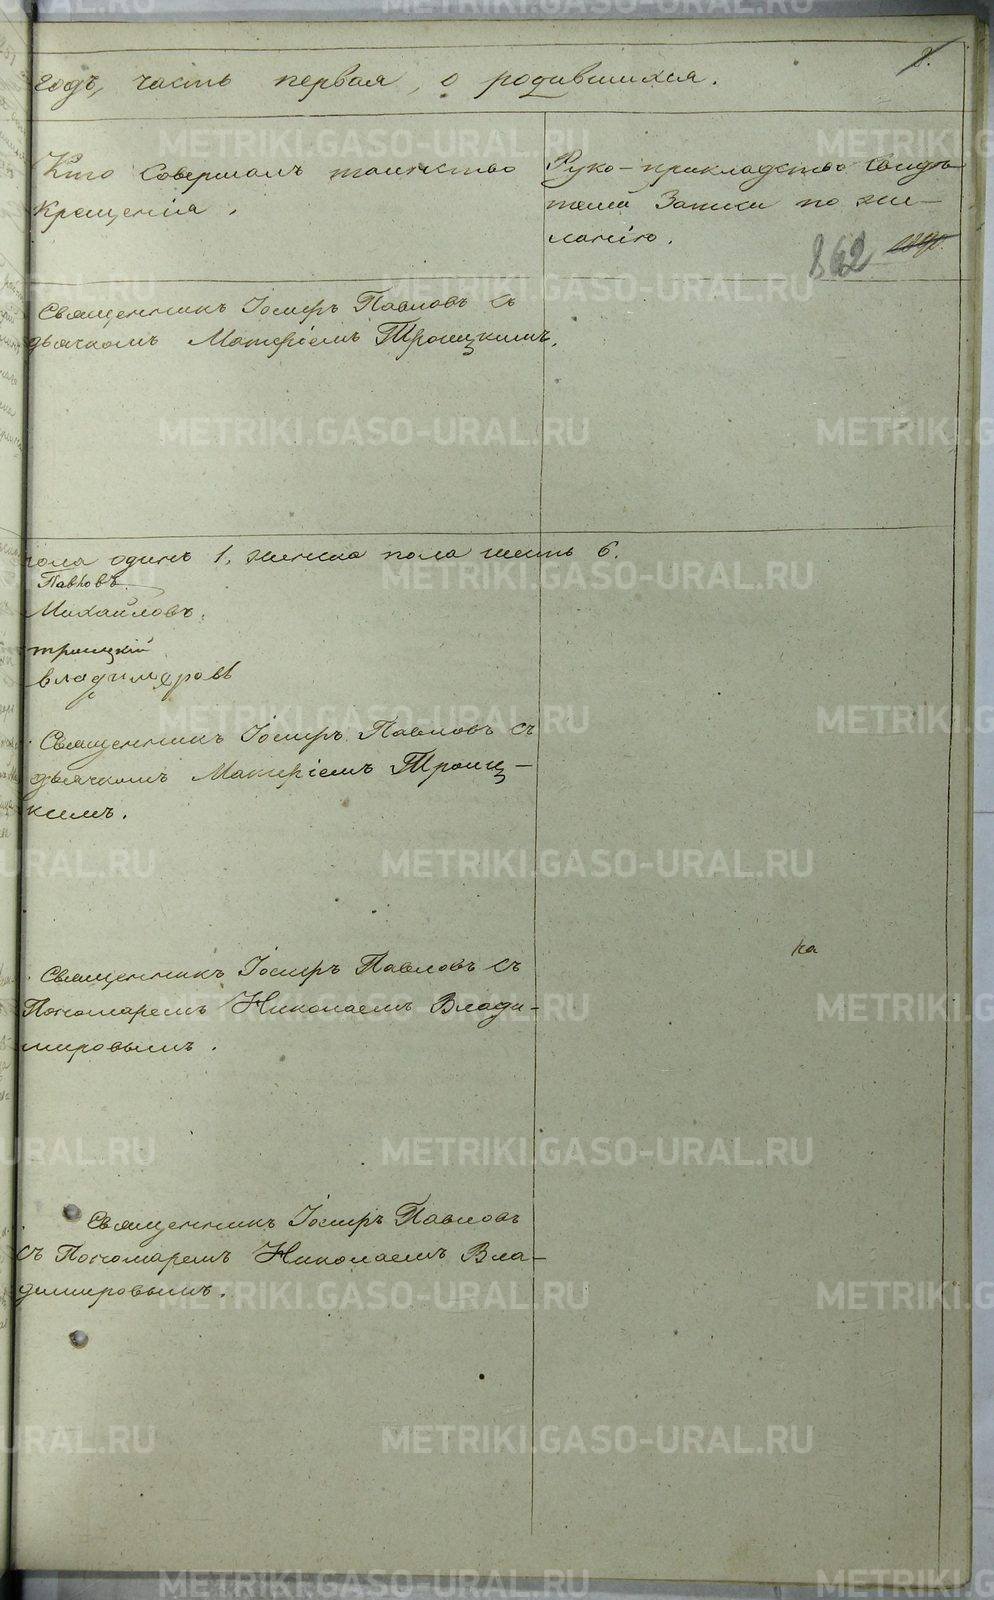 годъ, часть первая, о родившихся.
Кто совершалъ таинство
крещенія.
Руко-прикладство свидѣ-
телей записи по же-
ланію.
862
Священникъ Іосифъ Павловъ съ
дьячкомъ Матфіемъ Троицкимъ.
пола одинъ 1, женска пола шесть 6.
Павловъ
Михайловъ.
Троицкій
Владимеровъ
Священникъ Іосифъ Павловъ съ
дьячкомъ Матфіемъ Троиц-
кимъ.
Священникъ Іосифъ Павловъ съ
Пономаремъ Николаемъ Влади-
мировымъ.
на
Священникъ Іосифъ Павловъ
съ Пономаремъ Николаемъ Вла-
димировымъ.
METRIKI.GASO-URAL.RU